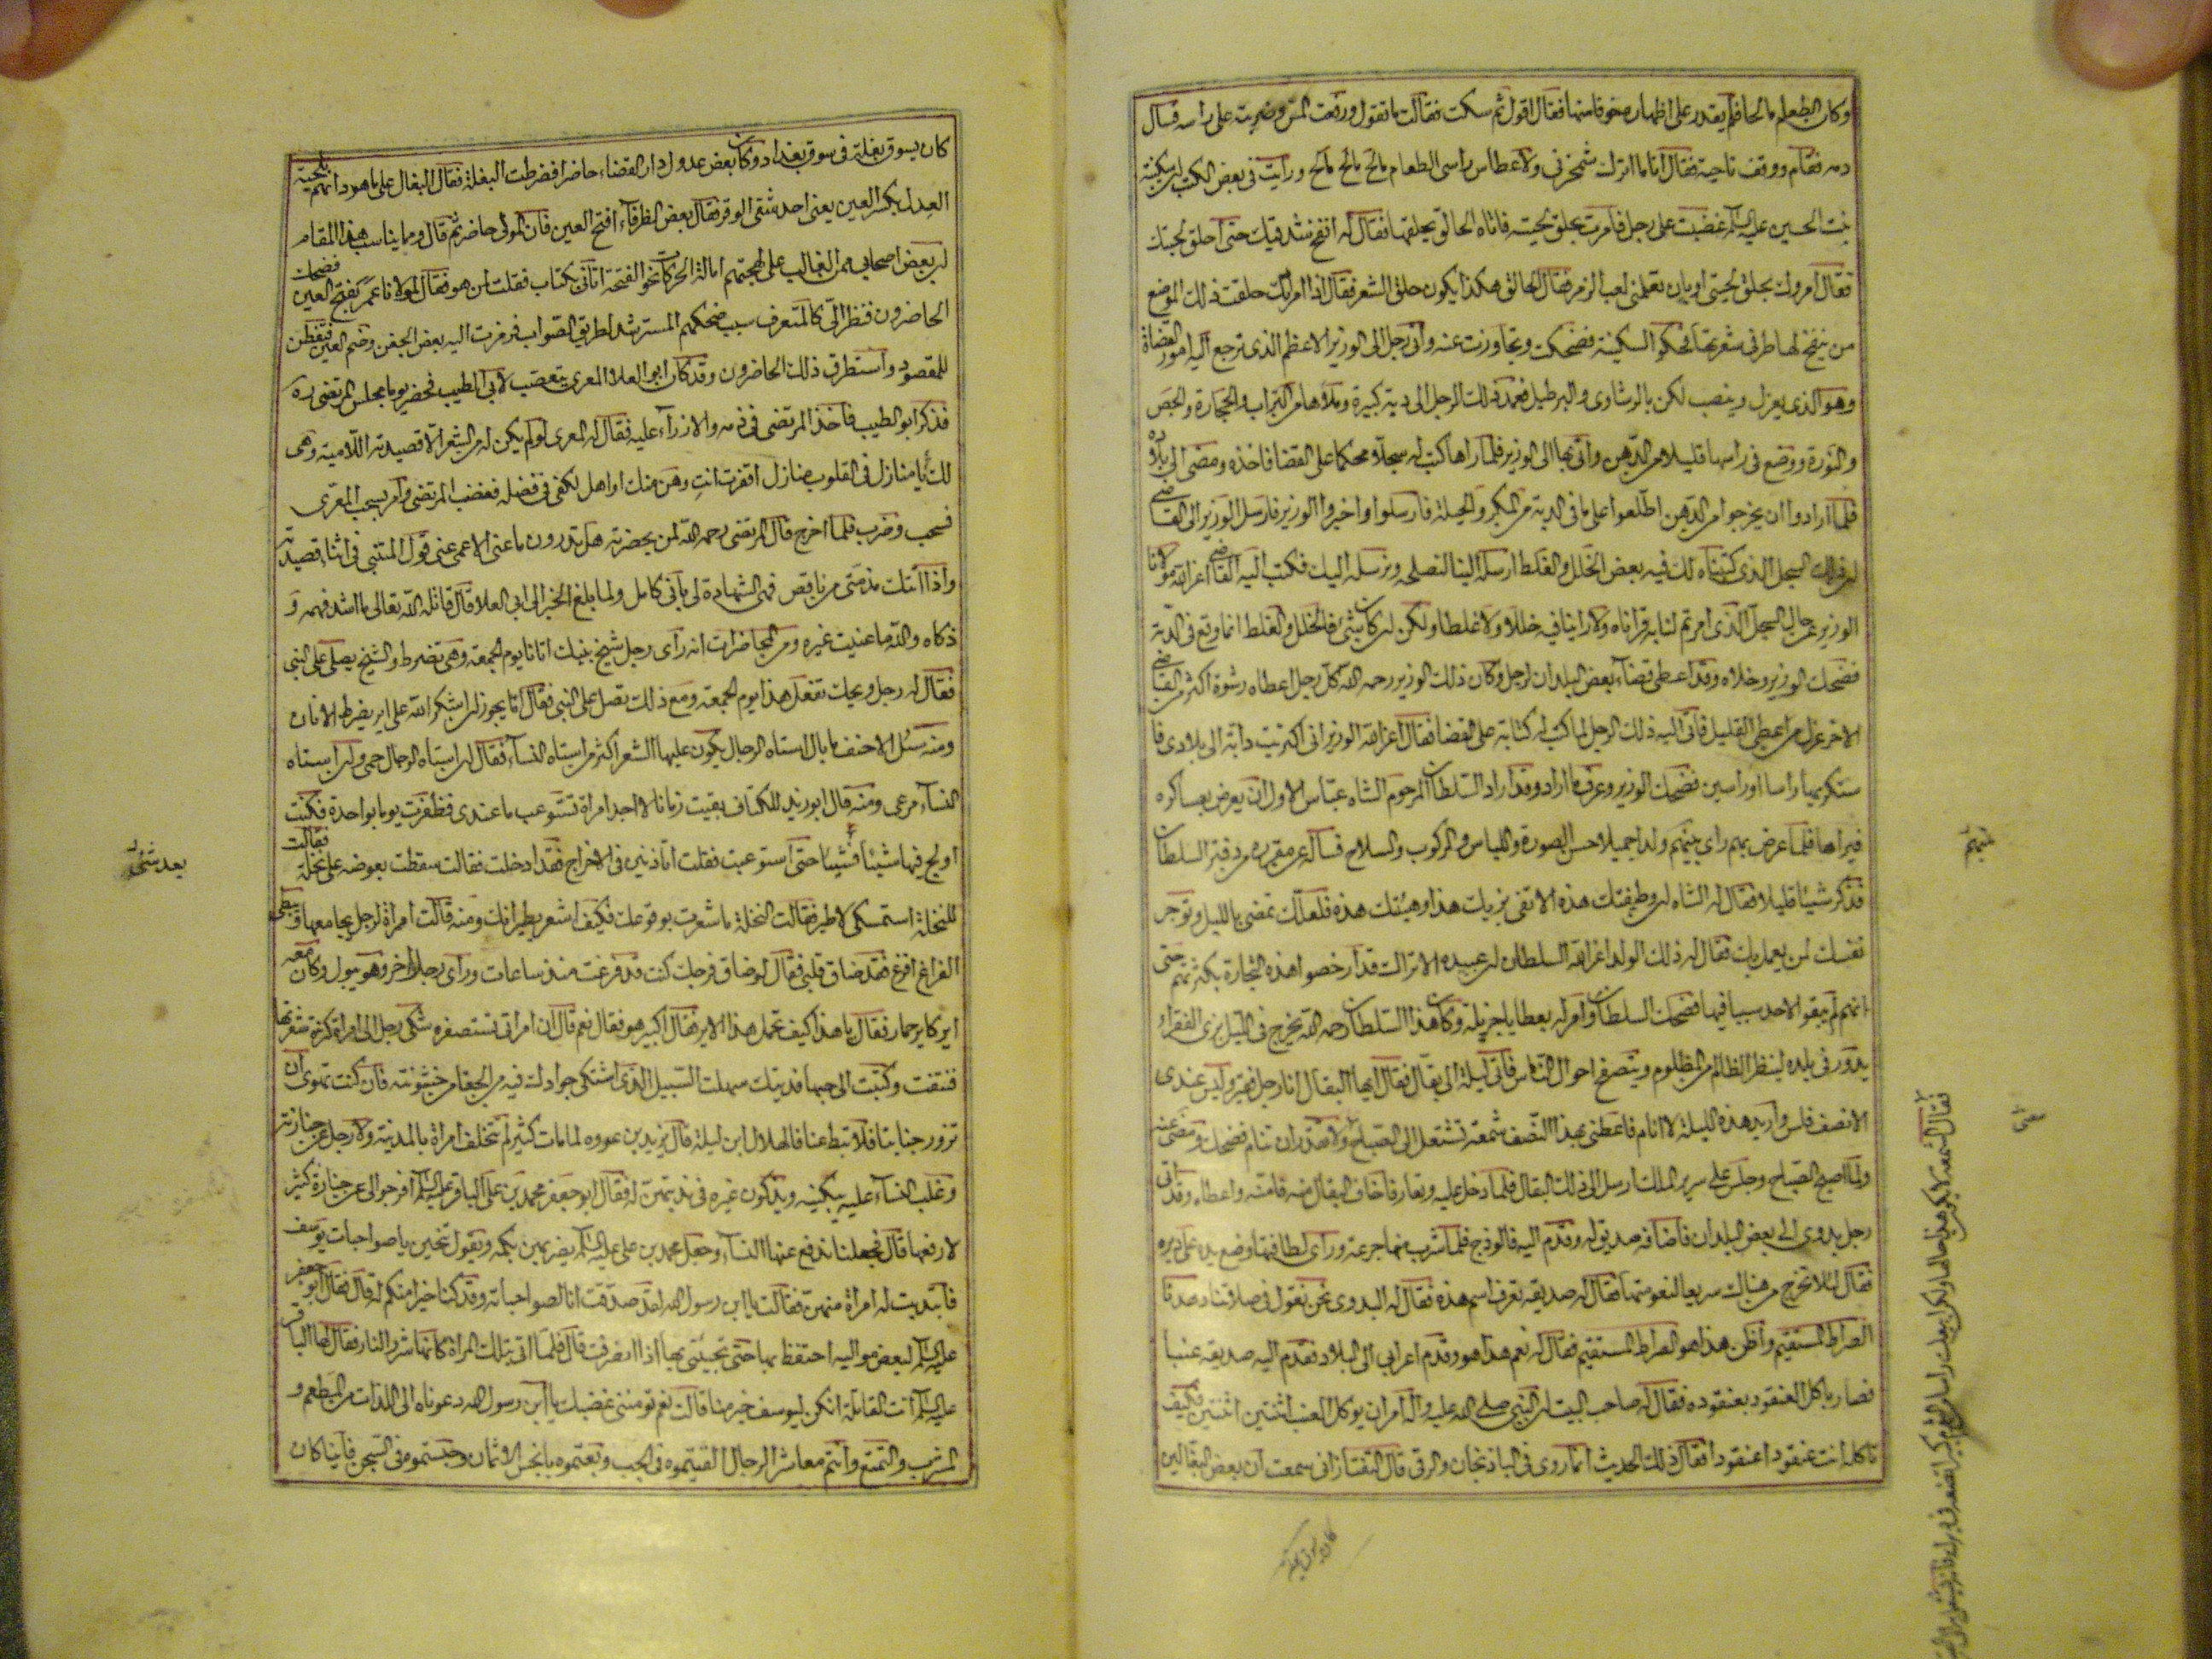 وكان الطعام مالحا فلم يقدر على اظهاره خوفا منها فقال اقول ثم سكت فقالت ما تقول ورفعت وضربته على راسه فسال
دمه فقام ووقف ناحية فقال انا ما اترك ولا عطاس راسى الطعام مالح مالح مالح ورايت فى بعض الكتب ان سكينة
بنت الحسين عليه السلم غضبت على رجل فامرت بحلق لحيته فاتاه الحالق يحلقها فقال له انفخ شدقيك حتى احلق لحيتك
فقال امروك بحلق لحيتى او بان تعلمنى لعب الزمر فقال الحالق هكذا يكون حلق الشعر فقال اذا امراتك حلقت ذلك الموضع
من ينفخ لها طرفى شعرتها فحكوه السكينة فضحكت وتجاوزت عنه واتى رجل الى الوزير الاعظم الذى ترجع اليه امور القضاة
وهو الذى يعزل وينصب لكن بالرشاوى والبرطيل فعمد ذلك الرجل الى دبة كبيرة وملأوها من التراب والحجارة والجص
والنورة ووضع فى راسها قليلا من الدهن واتى بها الى الوزير فلما راها كتب له سجلا محكما على القضا فاخذه ومضى الى بلاده
فلما ارادوا ان يخرجوا من الدهن اطلعوا على ما فى الدبة من المكر والحيلة فارسلوا واخبروا الوزير فارسل الوزير الى القاضى
ان ذلك السجل الذى كتبناه لك فيه بعض الخلل والغلط ارسله الينا لنصلحه ونرسله اليك فكتب اليه القاضى اعز الله مولانا
الوزير ان السجل الذى امرتم لنا به قراناه ولا راينا فيه خللا ولا غلطا ولكن ان كان شئ فالخلل والغلط انما وقع فى الدبة
فضحك الوزير وخلاه وقد اعطى قضاء بعض البلدان لرجل وكان ذلك الوزير رحمه الله كل رجل اعطاه رشوة اكثر من القاضى
الاخر عزل من اعطى القليل فاتى اليه ذلك الرجل لما كتب له كتابة على القضا فقال اعز الله الوزير انى اكتريت دابة الى بلادى فا
ستكريها راسا او راسين فضحك الوزير وعرف ما اراد وقد اراد السلطان المرحوم الشاه عباس الاول ان يعرض عساكره
فيراها فلما عرض بهم راى بينهم ولدا جميلا حسن الصورة واللباس والركوب والسلاح فساله عن مقرره من دفتر السلطان
فذكر شيئا قليلا فقال له الشاه ان وظيفتك هذه لا تفى بزيك هذا وهيئتك هذه فلعلك تمضى بالليل وتوجر
نفسك لمن يعمل بك فقال له ذلك الولد اعز الله السلطان ان عبيده الاتراك قد ارخصوا هذه التجارة بكثرتهم حتى
انهم لم يبقوا لاحد سببا فيها فضحك السلطان وامر له بعطايا جزيلة وكان هذا السلطان رحمه الله يخرج فى الليل بزى الفقراء
يدور فى بلده لينظر الظالم من المظلوم ويتصفح احوال الناس فاتى ليلة الى بقال فقال ايها البقال انا رجل فقير وليس عندى
الا نصف فلس واريد هذه الليلة لا انام فاعطنى بهذا النصف شمعة تشتعل الى الصباح ولا اقدر ان تنام فضحك ومضى عنه
ولما اصبح الصباح وجلس على سرير الملك ارسل الى ذلك البقال فلما دخل عليه وتعارفا خاف البقال منه فامنه واعطاه وقد اتى
رجل بدوى الى بعض البلدان فاضافه صديق له وقدم اليه فالوذج فلما شرب منها جرعة وراى لطافتها وضع يده على دبره
فقال لئلا تخرج من هنالك سريعا لنعومتها فقال له صديقه تعرف اسم هذه فقال له البدوى نحن نقول فى صلاتنا اهدنا
الصراط المستقيم واظن هذا هو الصراط المستقيم فقال له نعم هذا هو وقدم اعرابى الى البلاد فقدم اليه صديقه عنبا
فصار ياكل العنقود بعنقوده فقال له صاحب البيت ان النبى صلى الله عليه واله امر ان يوكل العنب اثنتين اثنتين فكيف
تاكل انت عنقودا عنقودا فقال ذلك الحديث انما روى فى الباذنجان والرقى قال التفتازانى سمعت ان بعض البغالين
كان يسوق بغلته
كان يسوق بغلة فى سوق بغداد وكان بعض عدول دار القضاء حاضرا فضرطت البغلة فقال البغال على ما هو دابهم بلحية
العدل بكسر العين يعنى احد شقى الوقر فقال بعض الظرفاء افتح العين فان المولى حاضر ثم قال ومما يناسب هذا المقام
ان بعض اصحابى ممن الغالب على لهجتهم امالة الحركات نحو الفتحة اتانى بكتاب فقلت لمن هو فقال لمولانا عمر بفتح العين فضحك
الحاضرون فنظر الى كالمتعرف سبب ضحكهم المسترشد لطريق الصواب فرمزت اليه بغض الجفن وضم العين فتفطن
للمقصود واستظرف ذلك الحاضرون وقد كان ابو العلاء المعرى يتعصب لابى الطيب فحضر يوما مجلس المرتضى ره
فذكر ابو الطيب فاخذ المرتضى فى ذمه والازراء عليه فقال له المعرى لو لم يكن له من الشعر الا قصيدته اللامية وهى
لك يا منازل فى القلوب منازل اقفرت انت وهن منك اواهل لكفى فى فضله فغضب المرتضى وامر بسحب المعرى
فسحب وضرب فلما اخرج قال المرتضى رحمه الله لمن بحضرته هل تدرون ما عنى الاعمى عنى قول المتنبى فى اثناء قصيدته
واذا اتتك مذمتى من ناقص فهى الشهادة لى بانى كامل ولما بلغ الخبر الى ابى العلا قال قاتله الله تعالى ما اشد فهمه و
ذكاه والله ما عنيت غيره ومن المحاضرات انه راى رجل شيخ ينيك اتانا يوم الجمعة وهى تضرط والشيخ يصلى على النبى
فقال له رجل ويحك تفعل هذا يوم الجمعة ومع ذلك تصل على النبى فقال اما يجوز ان اشكر الله على اير يضرط الاتان
ومنه سئل الاحنف ما بال استاه الرجال يكون عليها الشعر اكثر من استاه النساء فقال ان استاه الرجال حمى وان استاه
النساء مرعى ومنه قال ابو زيد بقيت زمانا لا اجد امراة تستوعب ما عندى فظفرت يوما بواحدة فكنت
اولج فيها شيئا فشيئا حتى استوعبت فقلت اتاذنين فى الاخراج فقد ادخلت فقالت سقطت بعوضة على نخلة فقالت
للنخلة استمسكى لاطير فقالت النخلة ما شعرت بوقوعك فكيف اشعر بطيرانك ومنه قالت امراة لرجل يجامعها وبطى
الفراغ افرغ فقد ضاق قلبى فقال لو ضاق فرجك كنت قد فرغت منذ ساعات وراى رجلا اخر وهو يبول وكان معه
اير كاير حمار فقال يا هذا كيف تحمل هذا الاير فقال اكبير هو فقال نعم قال ان امراتى تستصغره شكى رجل الى امراة كثرة شعرتها
فنتفت وكتبت الى حبها فديتك سهلت السبيل الذى اشتكى جوادك فيه من الجفا من خشونته فان كنت تهوى ان
تزور جنابنا فلا تبط عنا فالهلال ابن ليلة قال يزيد بن عروه لما مات كثير لم تتخلف امراة بالمدينة ولا رجل عن جنازته
وغلب النساء عليه يبكينه ويذكرون عزه فى ندبتهن له فقال ابو جعفر محمد بن على الباقر عليه السلم افرجوا لى عن جنازة كثير
لارفعها قال فجعلنا ندفع عنها النساء وجعل محمد بن على عليه السلم يضربهن بكمه ويقول تنحين يا صواحبات يوسف
فانتدبت له امراة منهن فقالت يا ابن رسول الله لقد صدقت انا لصواحباته وقد كنا خيرا منكم له قال فقال ابو جعفر
عليه السلم لبعض مواليه احتفظ بها حتى تجيئنى بها اذا انصرفت قال فلما اتى بتلك المراة كانها شرر النار فقال لها الباقر
عليه السلم انت القائلة انكن ليوسف خير منا قالت نعم تومننى غضبك يا ابن رسول الله دعوناه الى اللذات من المطعم و
المشرب والتمتع وانتم معاشر الرجال القيتموه فى الجب وبعتموه بابخس الاثمان وحبستموه فى السجن فاينا كان